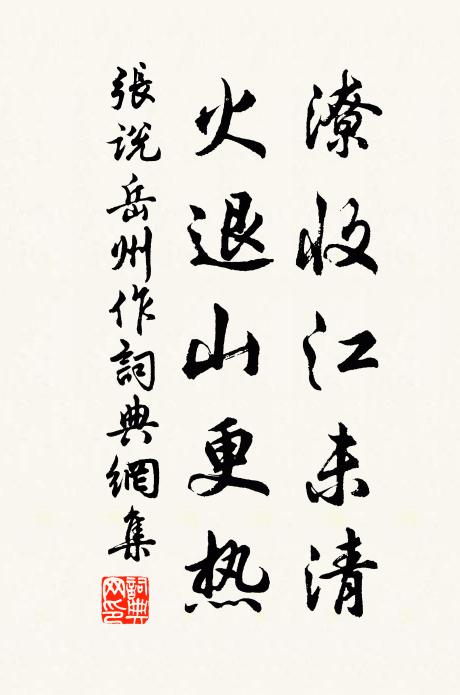 潦收江未清
火退山更热
張説岳州作詞典網集
詞典網印